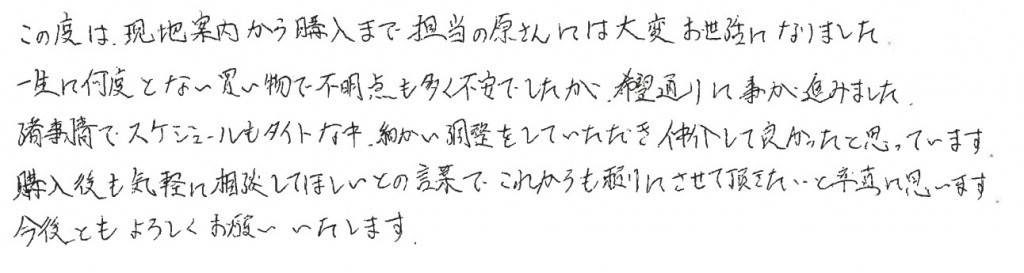 この度は、現地案内から購入まで担当の原さんには大変お世話になりました.
一生に何度とない買い物で不明点も多く不安でしたが、希望通りに事が進みました.
諸事情でスケジュールもタイトな中、細かい調整をしていただき仲介して良かったと思っています.
購入後も気軽に相談してほしいとの言葉で、これからも頼りにさせて頂きたいと率直に思います.
今後ともよろしくお願いいたします.